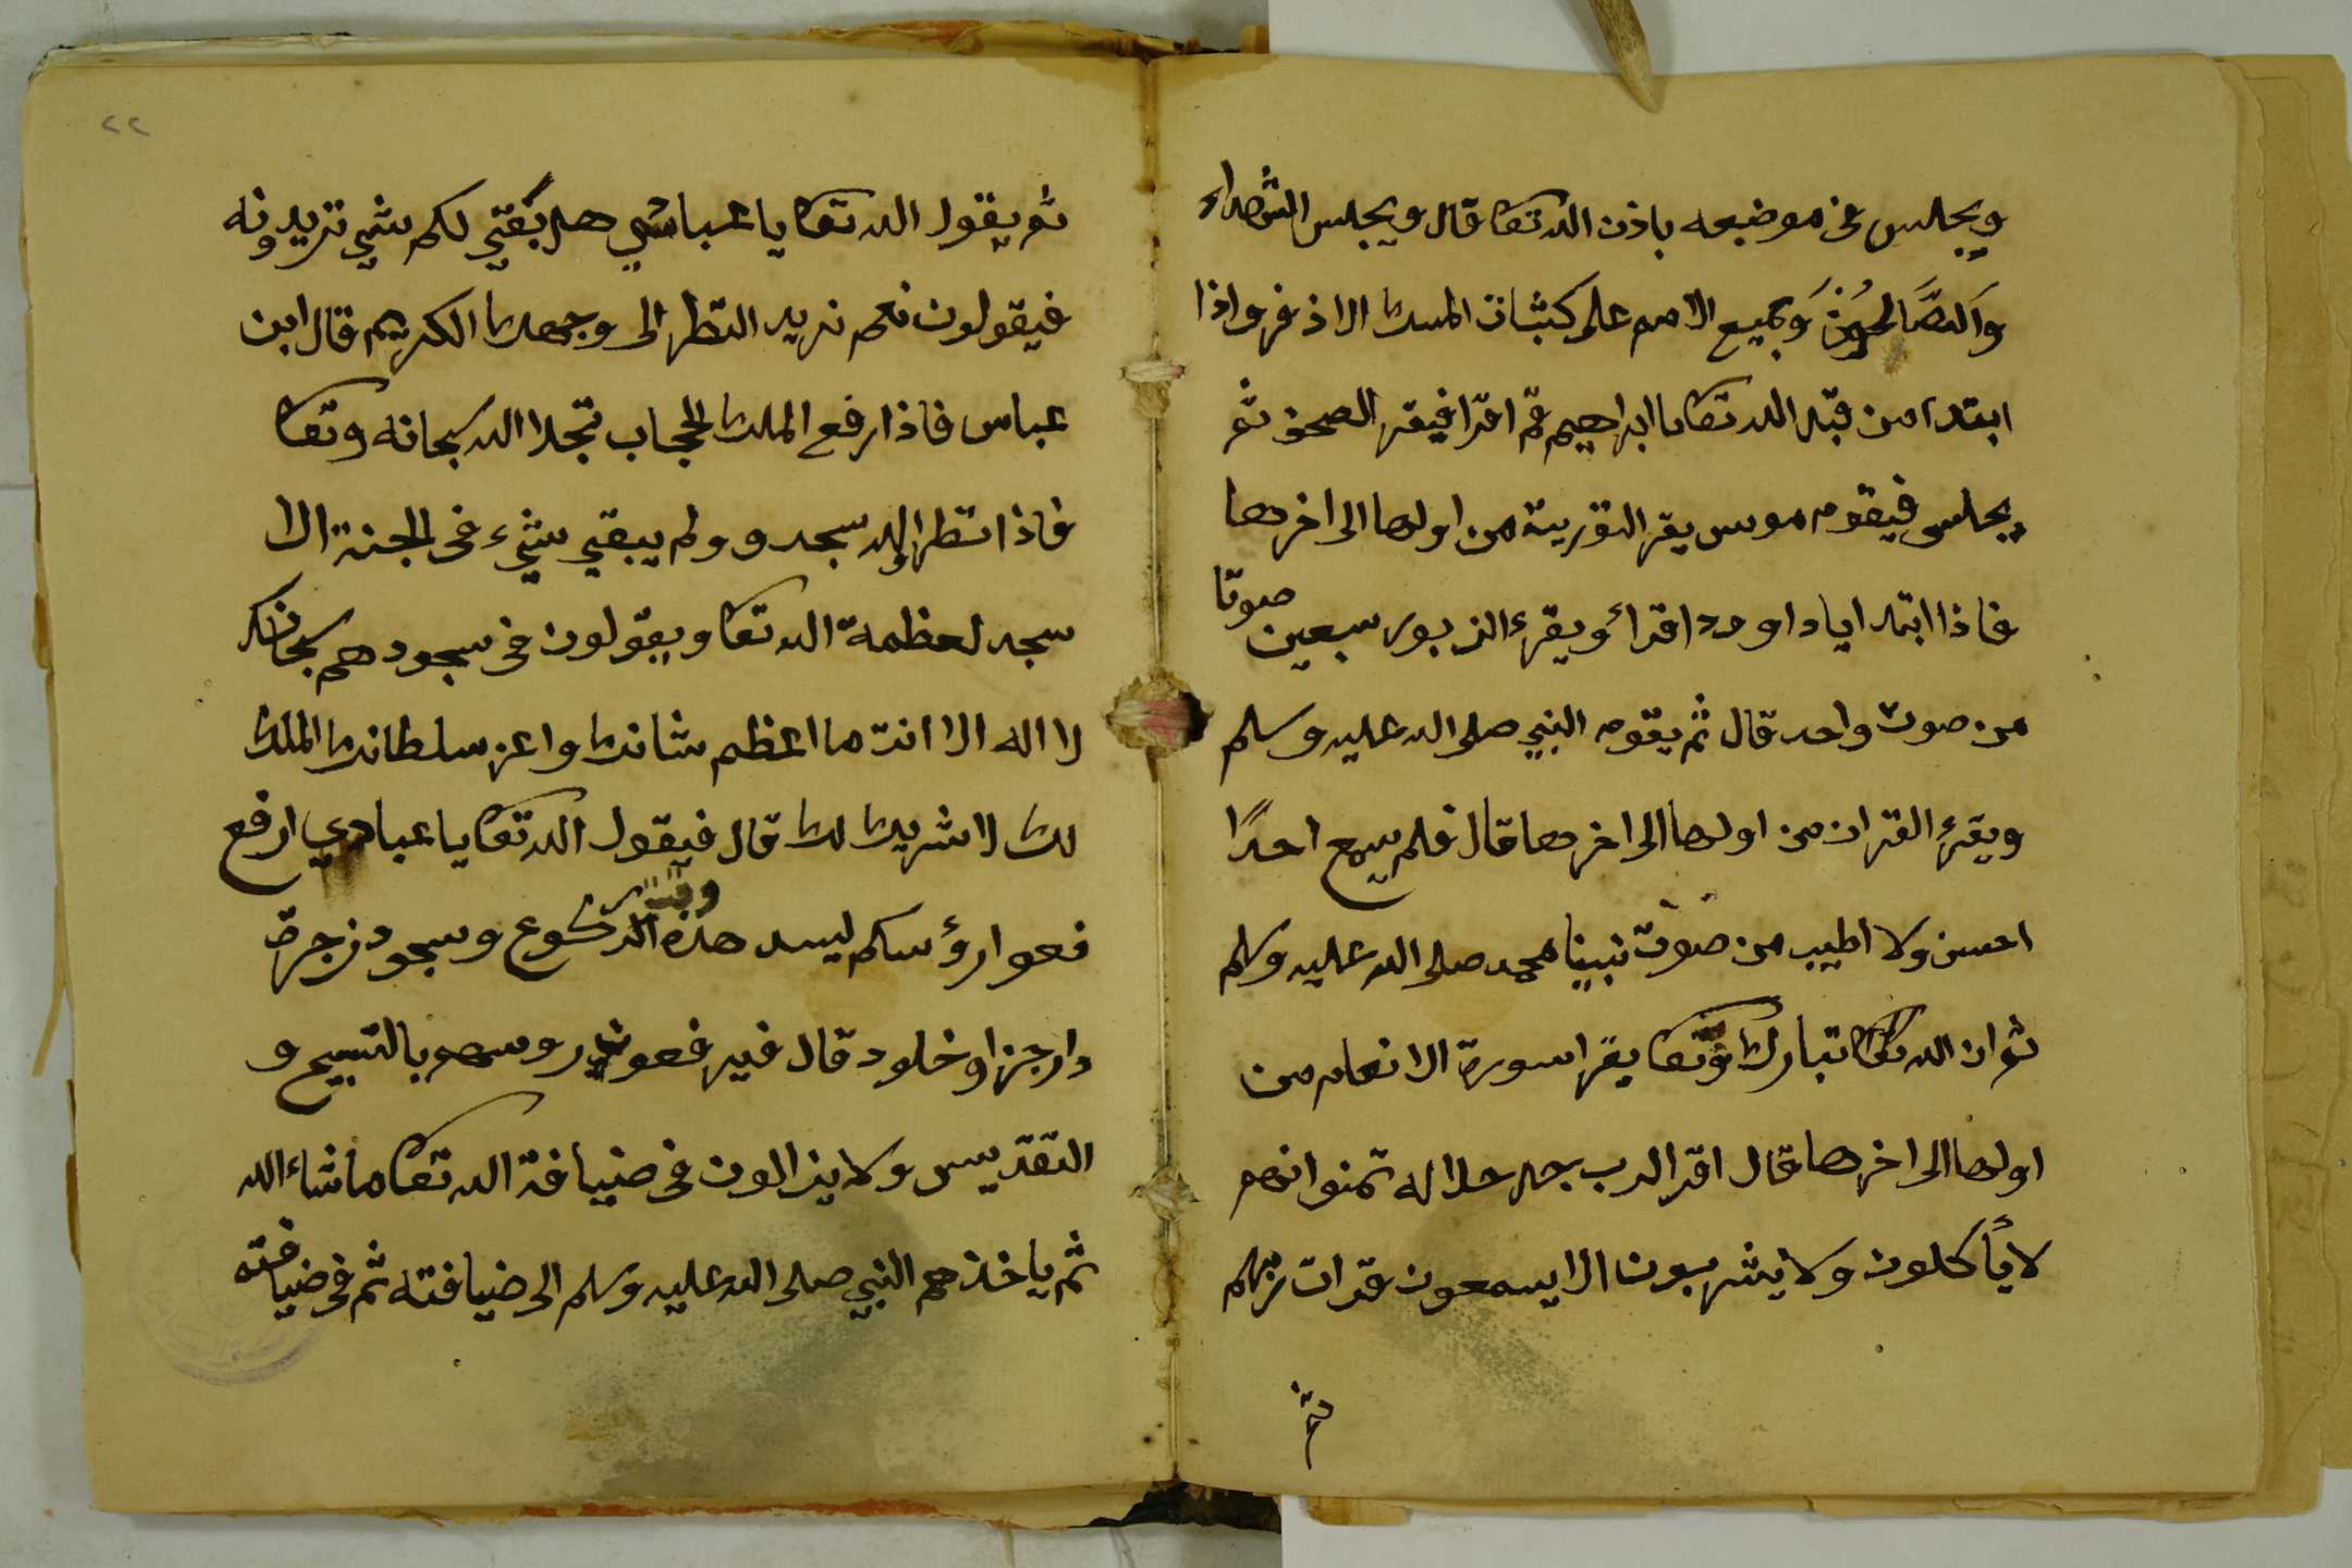 ويجلس في موضعه باذن الله تعا قال ويجلس الشهداء
وَالصَّالحون وَجميع الامم على كثبات المسك الاذفر واذا
ابتدا من قبل الله تعا يا ابراهيم قم اقرا فيقر الصحف ثم
يجلس فيقوم موس يقر التورية من اولها الى اخرها
فاذا ابتد ايا داوود اقرأ ويقرء الزبور سبعين صوتا
من صوت واحد قال ثم يقوم النبي صلى الله عليه وسلم
ويقرء القران من اولها الى اخرها قال فلم يسمع احدًا
احسن ولا اطيب من صوت نبينا محمد صلى الله عليه وسلم
ثم ان الله تبارك وتعا يقرا سورة الانعام من
اولها الى اخرها قال اقر الرب جل جلاله تمنوا انهم
لا يأكلون ولا يشربون الا يسمعون قرات ربهم
ثم
٢٢
ثم يقول الله تعا يا عبادي هل بَقي لكم شي تريدونه
فيقولون نعم نريد النظر الى وجهك الكريم قال ابن
عباس فاذا رفع الملك الحجاب تجلا الله سبحانه وتعا
فاذا نظر اليه سجدو ولم يبقي شيء في الجنة الا
سجد لعظمة الله تعا ويقولون في سجودهم سبحانك
لا اله الا انت ما اعظم شانك واعز سلطانك الملك
لك لا شريك لك قال فيقول الله تعا يا عبادي ارفع
فعوا رؤسكم ليسد هذه الركوع وسجود زجرة
دار جزا وخلود قال فيرفعون روسهم بالتسبيح و
التقديس ولا يزالون في ضيافة الله تعا ما شاء الله
ثم ياخذهم النبي صلى الله عليه وسلم الى ضيافته ثم في ضيافته